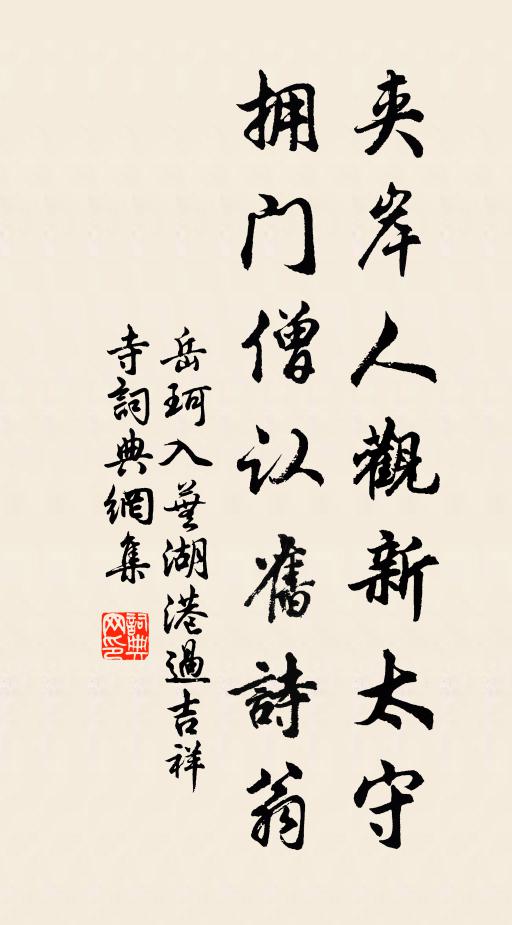 夹岸人觀新太守
拥门僧认舊詩翁
岳珂入蕪湖港過吉祥
寺詞典網集
詞典网印